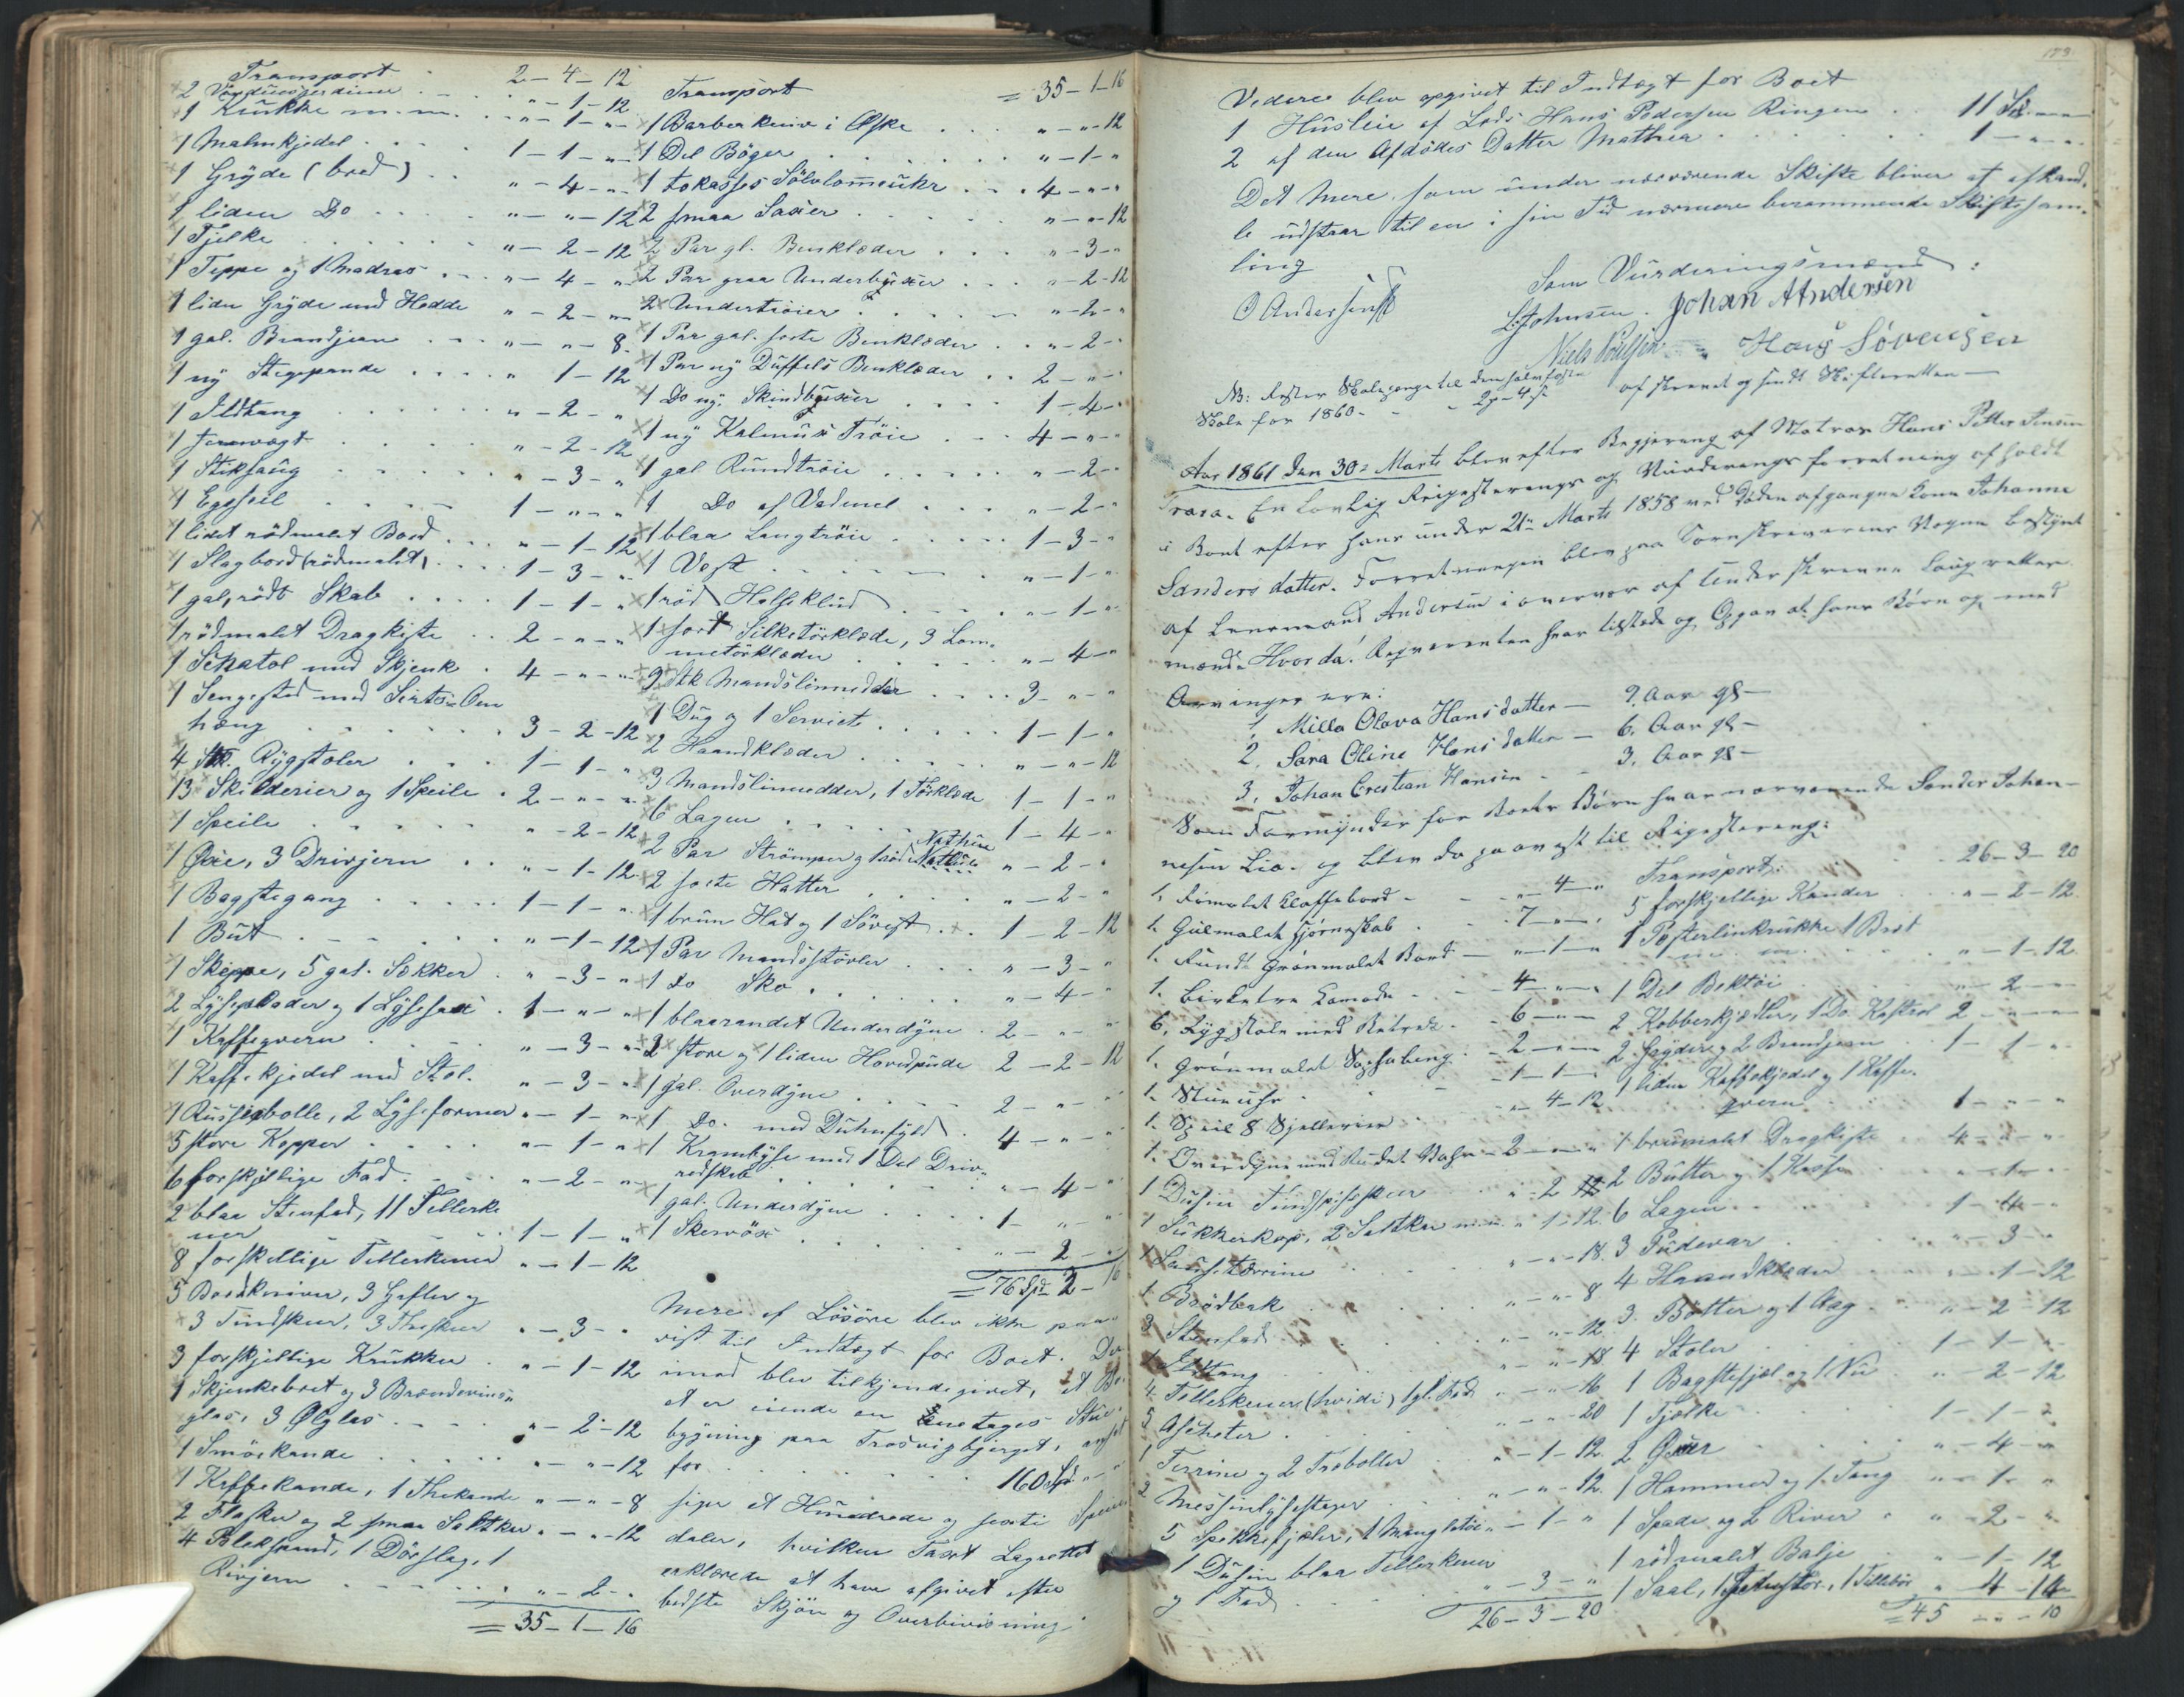 Transport . 2 - 4 - 12
2 Vinduesgardiner . . " - 1 - 12
1 Krukke m. m. . . " - 1 - "
1 Malmkjedel . . . 1 - 1 - "
1 Gryde (bred) . . " - 4 - "
1 liden Do . . . " - " - 12
1 Fjelke . . . " - 2 - 12
1 Teppe og 1 Madras . . " - 4 - "
1 liden Gryde med Hodde " - 2 - "
1 gal. Brandjern . . " - " - 8
1 ny Stegepande . . . " 1 - 12
1 Ildtang . . . " - 2 - "
1 Jernvægt . . . " - 2 - 12
1 Stiksaug . . . " - 3 - "
1 Egeseil . . . 1 - " - "
1 lidet rödmalet Bord . . . " - 1 - 12
1 Slagbord (rödmalet) . . . 1 - 3 - "
1 gal, rödt Skab . . . 1 - 1 - "
1 rödmalet Dragkiste . . 2 - " - "
1 Schatol med Skjenk . 4 - " - "
1 Sengested med Sirts-Om
hæng . . . 3 - 2 - 12
4 Stk. Rygstoler . . . 1 - 1 - "
13 Skilderier og 1 Speile . 2 - " - "
1 Speile . . . " - 2 - 12
1 Öxe, 3 Drivjern . . " - 1 - 12
1 Bagstegang . . . 1 - 1 - "
1 Büt . . . " - 1 - 12
1 Skippe, 5 gal. Sækker . " - 3 - "
2 Lyseplader og 1 Lysesax . 1 - " - "
1 Kaffeqvern . . . " - 3 - "
1 Kaffekjedel med Stol. " - 3 - "
1 Russiebolle, 2 Lyseformer " - 1 - "
5 store Kopper . . . " - 1 - "
6 forskjellige Fad . . . " - 2 - "
2 blaa Stenfad, 11 Tellerke
ner . . . 1 - 1 - "
8 forskellige Tellerkener " - 1 - 12
5 Bordkniver, 3 Gafler og
3 Tindskeer, 3 Theskeer . " - 3 - "
3 forskjellige Krukker . . " - 1 - 12
1 Skjenkebret og 3 Brændeviins-
glas, 3 Ölglas . . . " - 2 - 12
1 Smörkande . . . " - " - 12
1 Kaffekande, 1 Thekande " - " - 8
2 Flasker og 2 smaa Saltkar " - " - 12
4 Blekspand, 1 Dörslag, 1
Rivjern . . . " - 2 - "
= 35 - 1 - 16
Transport = 35 - 1 - 16
1 Barberkniv i Æske . . . " - " - 12
1 Del Böger . . . " - 1 - "
1 tokasses Sölvlommeuhr . . . 4 - " - "
2 smaa Saxer . . . " - " - 12
2 Par gl. Benklæder . . . " - 3 - "
2 Par graa Underbuxer . . . " - 2 - 12
2 Undertröier . . . " - 2 - "
1 Par gal. sorte Benklæder . . " - 2 - "
1 Par ny Duffels Benklæder . . 2 - " - "
1 Do ny Skindbuxer . . . 1 - 4 - "
1 ny Kalmuks Tröie . . . 4 - " - "
1 gal Rundtröie . . . " - 2 - "
1 Do af Vadmel . . . " - 2 - "
1 blaa Langtröie . . . 1 - 3 - "
1 Vest . . . " - 1 - "
1 röd Halseklud . . . " - 1 - "
1 sort Silketörklæde, 3 Lom-
metörklæder . . . " - 4 - "
9 Stk Mandslinnedder . . . 3 - " - "
1 Dug og 1 Serviet . . . 1 - 1 - "
2 Haandklæder . . . " - " - 12
3 Mandslinnedder, 1 Törklæde 1 - 1 - "
6 Lagen . . . 1 - 4 - "
2 Par Strömper og 1 röd Nathue " - 2 - "
2 sorte Hatter . . . " - 2 - "
1 brun Hat og 1 Sövest . . 1 - 2 - 12
1 Par Mandsstövler . . . " - 3 - "
1 Do Sko . . . " - 4 - "
1 blaarandet Underdyne . 2 - " - "
2 store og 1 liden Hovedpude 2 - 2 - 12
1 gal. Overdyne . . . 2 - " - "
1 Do. med Duhnfyld . 4 - " - "
1 Krambyse med 1 Del Driv-
redskab . . . " - 4 - "
1 gal. Underdyne . . . 1 - " - "
1 Skervöx . . . " - 2 - "
= 76 Spd 2 - 16
Mere af Lösöre blev ikke paa-
vist til Indtægt for Boet. Der
imod blev tilkjendegivet, at Bo-
et er eiende en Eenetages Stue-
bygning paa Trosvigbjerget, ansat
for . . . 160 Spd - " - "
siger et Hundrede og sexti Specie
daler, hvilken Taxt Lagrettet
erklærede at have afgivet efter
bedste Skjön og Overbeviisning.
173
Videre blev opgivet til Indtægt for Boet
1 Husleie af Lods Hans Pedersen Ringen . 11 Sp. " - "
2 af den Afdödes Datter Mathea . . . 1 - " - "
Det Mere, som under nærværende Skifte bliver at afhand-
le udstaar til en i sin Tid nærmere berammende Skiftesam-
ling
Som Vurderingsmænd:
O Andersen L. Johnsen. Johan AAndersen
Niels Poulsen Hans Sörensen
NB: Rester Skolepenge til den
Skole for 1860 - - 2 - 4 - afskrevet og sendt Skifteretten -
Aar 1861 den 30te Marts blev efter Begjæring af Matros Hans Petter Jensen
Traxa. En Lovlig Registrerings og Vurderings forretning afholdt
i Boet efter hans under 21de Marts 1858 ved Döden afgangne Kone Johanne
Sanders datter. Forretningen blev paa Sorenskriverens Vegne bestyret
af Lensmand Andersen i overvær af Underskrevne Laugrettes
mænd. Hvorda! Reqvirenten hvar tilstede og Opgav at hans Börn og med
Arvinger ere:
1, Milla Olava Hans datter - 9. Aar gl -
2, Sara Oline Hans datter - 6. Aar gl -
3, Johan Crestian Hansen - 3. Aar gl -
Som Formynder for Boets Börn hvar nærværende Sander Johan-
nesen Lia. og blev da paavist til Registrering:
1, Römalet Claffebord - - " 4 - "
1. Gulmalet Hjörneskab . . 7 - " - "
1. Rundt Grönmalet Bord - " - 1 - "
1. Birketræ Komode - - 4 - " - "
6. Rygstole med Betræk - 6 - " - "
1. Grönmalet Sophabeng - 2 - " - "
1. Stueuhr . . - 1 - 1 - "
1. Speil 8 Skjellerier . . " - 4 - 12
1. Overdyne med Rudet Vahr - 2 - " - "
1 Dusin Tindspiseskeer . " - 2 12
1 Sukkerkop, 2 Saltkar m.m. " 1 - 12
1 Sausetærrine . . . " - " - 18
1 Brödbrak . . . " - " - 8
3 Stenfad . . . " - " - 12
1 Ildtang . . . " - " - 18
4 Tellerkener (hvide) 1 gl. Fad " - " - 16
5 Aschetter . . . " - " - 20
1 Terrine og 2 Træboller . " - 1 - 12
2 Messinglysestager . . . " - " - 12
5 Spekkefjæler, 1 Mangletöi " - 1 - "
1 Dusin blaa Tellerkener
og 1 Fad . . . " - 3 - "
26 - 3 - 20
Transport: . . 26 - 3 - 20
5 forskjellige Kander . . " - 2 - 12
1 Posterlinkrukke 1 Bret
m. m. . . . " - 1 - 12
1 Del Bektöi . . . " - 2 - "
2 Kobberkjedler, 1 Do. Kastrol 2 - " - "
2 Gryder og 2 Brandjern . 1 - 1 - "
1 liden Kaffekjedel og 1 Kaffe-
qvern . . . 1 - " - "
1 brunmalet Dragkiste . . 4 - " - "
2 Bütter og 1 Kasse . . " - 1 - "
6 Lagen . . . 1 - 4 - "
3 Pudevar . . . " - 3 - "
4 Haandklæder . . . " - 1 - 12
3 Bötter og 1 Aag . . " - 2 - 12
4 Stoler . . . 1 - 1 - "
1 Bagstefjel og 1 Nu . . " - 2 - 12
1 Fjælke . . . 1 - 1 - "
2 Öxer . . . " - 4 - "
1 Hammer og 1 Tang . " - 1 - "
1 Spade og 2 River . . " - 2 - "
1 rödmalet Balje . . " - 1 - 12
1 Saal, 1 , 1 " 4 - 14
= 45 - " - 10